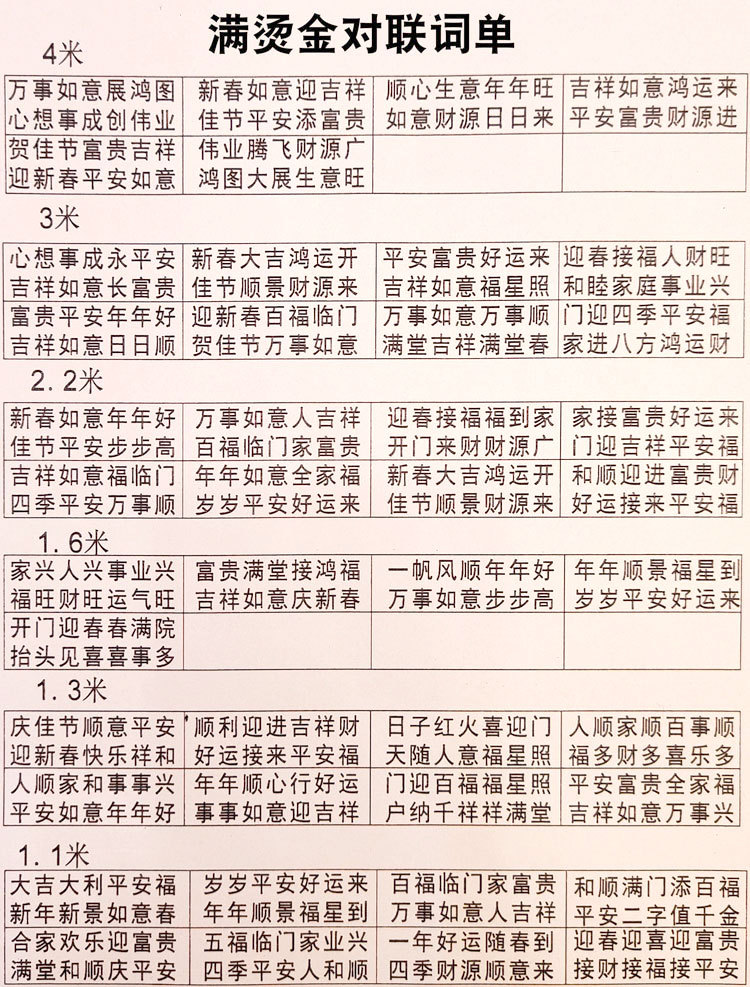 满烫金对联词单
4米
万事如意展鸿图 新春如意迎吉祥 顺心生意年年旺 吉祥如意鸿运来
心想事成创伟业 佳节平安添富贵 如意财源日日来 平安富贵财源进
贺佳节富贵吉祥 伟业腾飞财源广
迎新春平安如意 鸿图大展生意旺
3米
心想事成永平安 新春大吉鸿运开 平安富贵好运来 迎春接福人财旺
吉祥如意长富贵 佳节顺景财源来 吉祥如意福星照 和睦家庭事业兴
富贵平安年年好 迎新春百福临门 万事如意万事顺 门迎四季平安福
吉祥如意日日顺 贺佳节万事如意 满堂吉祥满堂春 家进八方鸿运财
2.2米
新春如意年年好 万事如意人吉祥 迎春接福福到家 家接富贵好运来
佳节平安步步高 百福临门家富贵 开门来财财源广 门迎吉祥平安福
吉祥如意福临门 年年如意全家福 新春大吉鸿运开 和顺迎进富贵财
四季平安万事顺 岁岁平安好运来 佳节顺景财源来 好运接来平安福
1.6米
家兴人兴事业兴 富贵满堂接鸿福 一帆风顺年年好 年年顺景福星到
福旺财旺运气旺 吉祥如意庆新春 万事如意步步高 岁岁平安好运来
开门迎春春满院
抬头见喜喜事多
1.3米
庆佳节顺意平安 顺利迎进吉祥财 日子红火喜迎门 人顺家顺百事顺
迎新春快乐祥和 好运接来平安福 天随人意福星照 福多财多喜乐多
人顺家和事事兴 年年顺心行好运 门迎百福福星照 平安富贵全家福
平安如意年年好 事事如意迎吉祥 户纳千祥祥满堂 吉祥如意万事兴
1.1米
大吉大利平安福 岁岁平安好运来 百福临门家富贵 和顺满门添百福
新年新景如意春 年年顺景福星到 万事如意人吉祥 平安二字值千金
合家欢乐迎富贵 五福临门家业兴 一年好运随春到 迎春迎喜迎富贵
满堂和顺庆平安 四季平安人和顺 四季财源顺意来 接财接福接平安